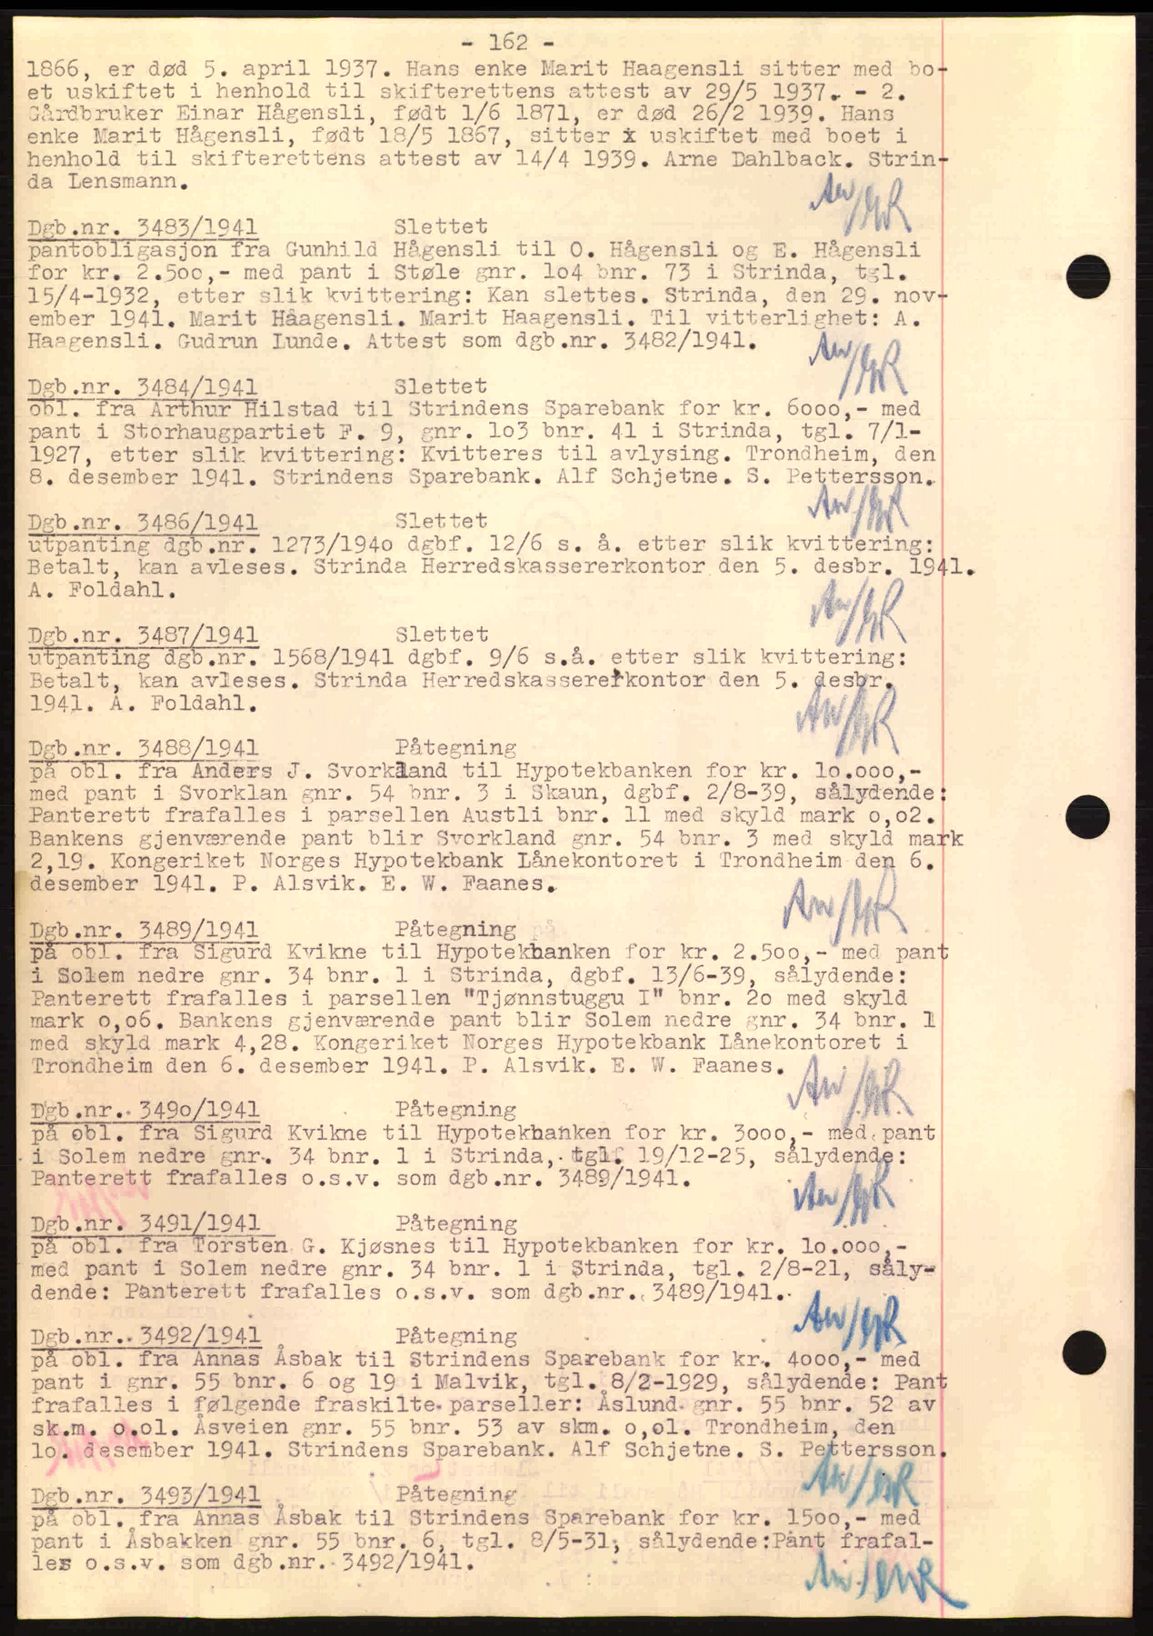 - 162 -
1866, er død 5. april 1937. Hans enke Marit Haagensli sitter med bo-
et uskiftet i henhold til skifterettens attest av 29/5 1937. - 2.
Gårdbruker Einar Hågensli, født 1/6 1871, er død 26/2 1939. Hans
enke Marit Hågensli, født 18/5 1867, sitter i uskiftet med boet i
henhold til skifterettens attest av 14/4 1939. Arne Dahlback. Strin-
da Lensmann.
Dgb.nr. 3483/1941 Slettet
pantobligasjon fra Gunhild Hågensli til O. Hågensli og E. Hågensli
for kr. 2.5oo,- med pant i Støle gnr. lo4 bnr. 73 i Strinda, tgl.
15/4-1932, etter slik kvittering: Kan slettes. Strinda, den 29. nov-
ember 1941. Marit Håagensli. Marit Haagensli. Til vitterlighet: A.
Haagensli. Gudrun Lunde. Attest som dgb.nr. 3482/1941.
Dgb.nr. 3484/1941 Slettet
obl. fra Arthur Hilstad til Strindens Sparebank for kr. 6ooo,- med
pant i Storhaugpartiet F. 9, gnr. lo3 bnr. 41 i Strinda, tgl. 7/1-
1927, etter slik kvittering: Kvitteres til avlysing. Trondheim, den
8. desember 1941. Strindens Sparebank. Alf Schjetne. S. Pettersson.
Dgb.nr. 3486/1941 Slettet
utpanting dgb.nr. 1273/194o dgbf. 12/6 s. å. etter slik kvittering:
Betalt, kan avleses. Strinda Herredskassererkontor den 5. desbr. 1941.
A. Foldahl.
Dgb.nr. 3487/1941 Slettet
utpanting dgb.nr. 1568/1941 dgbf. 9/6 s.å. etter slik kvittering:
Betalt, kan avleses. Strinda Herredskassererkontor den 5. desbr.
1941. A. Foldahl.
Dgb.nr. 3488/1941 Påtegning
på obl. fra Anders J. Svorkland til Hypotekbanken for kr. lo.ooo,-
med pant i Svorklan gnr. 54 bnr. 3 i Skaun, dgbf. 2/8-39, sålydende:
Panterett frafalles i parsellen Austli bnr. 11 med skyld mark o,o2.
Bankens gjenværende pant blir Svorkland gnr. 54 bnr. 3 med skyld mark
2,19. Kongeriket Norges Hypotekbank Lånekontoret i Trondheim den 6.
desember 1941. P. Alsvik. E. W. Faanes.
Dgb.nr. 3489/1941 Påtegning på
på obl. fra Sigurd Kvikne til Hypotekbanken for kr. 2.5oo,- med pant
i Solem nedre gnr. 34 bnr. 1 i Strinda, dgbf. 13/6-39, sålydende:
Panterett frafalles i parsellen "Tjønnstuggu I" bnr. 2o med skyld
mark o,o6. Bankens gjenværende pant blir Solem nedre gnr. 34 bnr. 1
med skyld mark 4,28. Kongeriket Norges Hypotekbank Lånekontoret i
Trondheim den 6. desember 1941. P. Alsvik. E. W. Faanes.
Dgb.nr. 349o/1941 Påtegning
på obl. fra Sigurd Kvikne til Hypotekbanken for kr. 3ooo,- med pant
i Solem nedre gnr. 34 bnr. 1 i Strinda, tgl. 19/12-25, sålydende:
Panterett frafalles o.s.v. som dgb.nr. 3489/1941.
Dgb.nr. 3491/1941 Påtegning
på obl. fra Torsten G. Kjøsnes til Hypotekbanken for kr. lo.ooo,-
med pant i Solem nedre gnr. 34 bnr. 1 i Strinda, tgl. 2/8-21, såly-
dende: Panterett frafalles o.s.v. som dgb.nr. 3489/1941.
Dgb.nr. 3492/1941 Påtegning
på obl. fra Annas Åsbak til Strindens Sparebank for kr. 4ooo,- med
pant i gnr. 55 bnr. 6 og 19 i Malvik, tgl. 8/2-1929, sålydende: Pant
frafalles i følgende fraskilte parseller: Åslund gnr. 55 bnr. 52 av
sk.m. o.ol. Åsveien gnr. 55 bnr. 53 av skm. o,ol. Trondheim, den
lo. desember 1941. Strindens Sparebank. Alf Schjetne. S. Pettersson.
Dgb.nr. 3493/1941 Påtegning
på obl. fra Annas Åsbak til Strindens Sparebank for kr. 15oo,- med
pant i Åsbakken gnr. 55 bnr. 6, tgl. 8/5-31, sålydende:Pant frafal-
les o.s.v. som dgb.nr. 3492/1941.